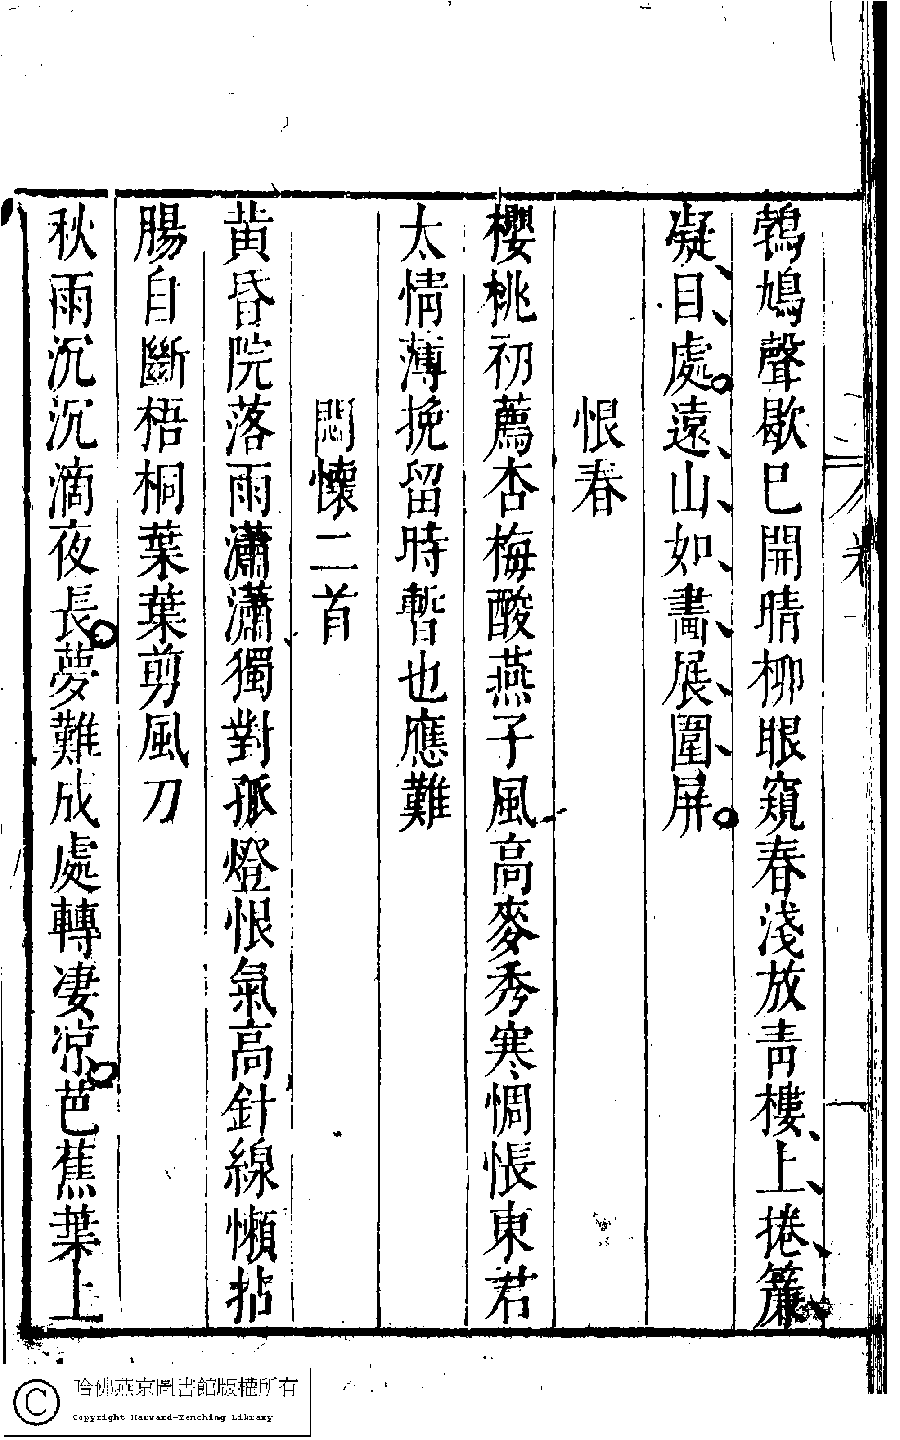 鵓鳩聲歇巳開晴柳眼窺春淺放青樓上捲簾
凝目處遠山如畵展圍屏
恨春
櫻桃初薦杏梅酸燕子風高麥秀寒惆悵東君
太情薄挽留時暫也應難
悶懷二首
黃昏院落雨瀟瀟獨對孤燈恨氣高針線懶拈
腸自斷梧桐葉葉剪風刀
秋雨沉沉滴夜長夢難成處轉凄凉芭蕉葉上
哈佛燕京圖書館版權所有
Copyright Harvard-Yenching Library